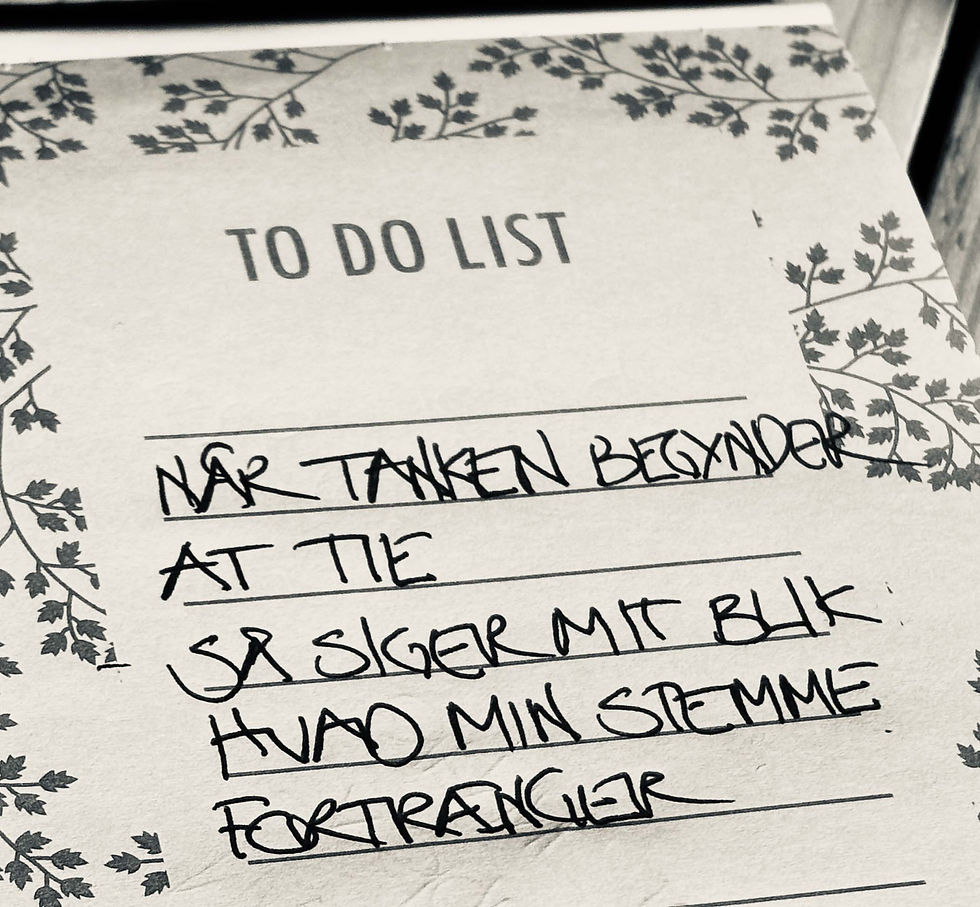 TO DO LIST
NÅR TANKEN BEGYNDER
AT TIE
SÅ SIGER MIT BLIK
HVAD MIN STEMME
FORTRÆNGER